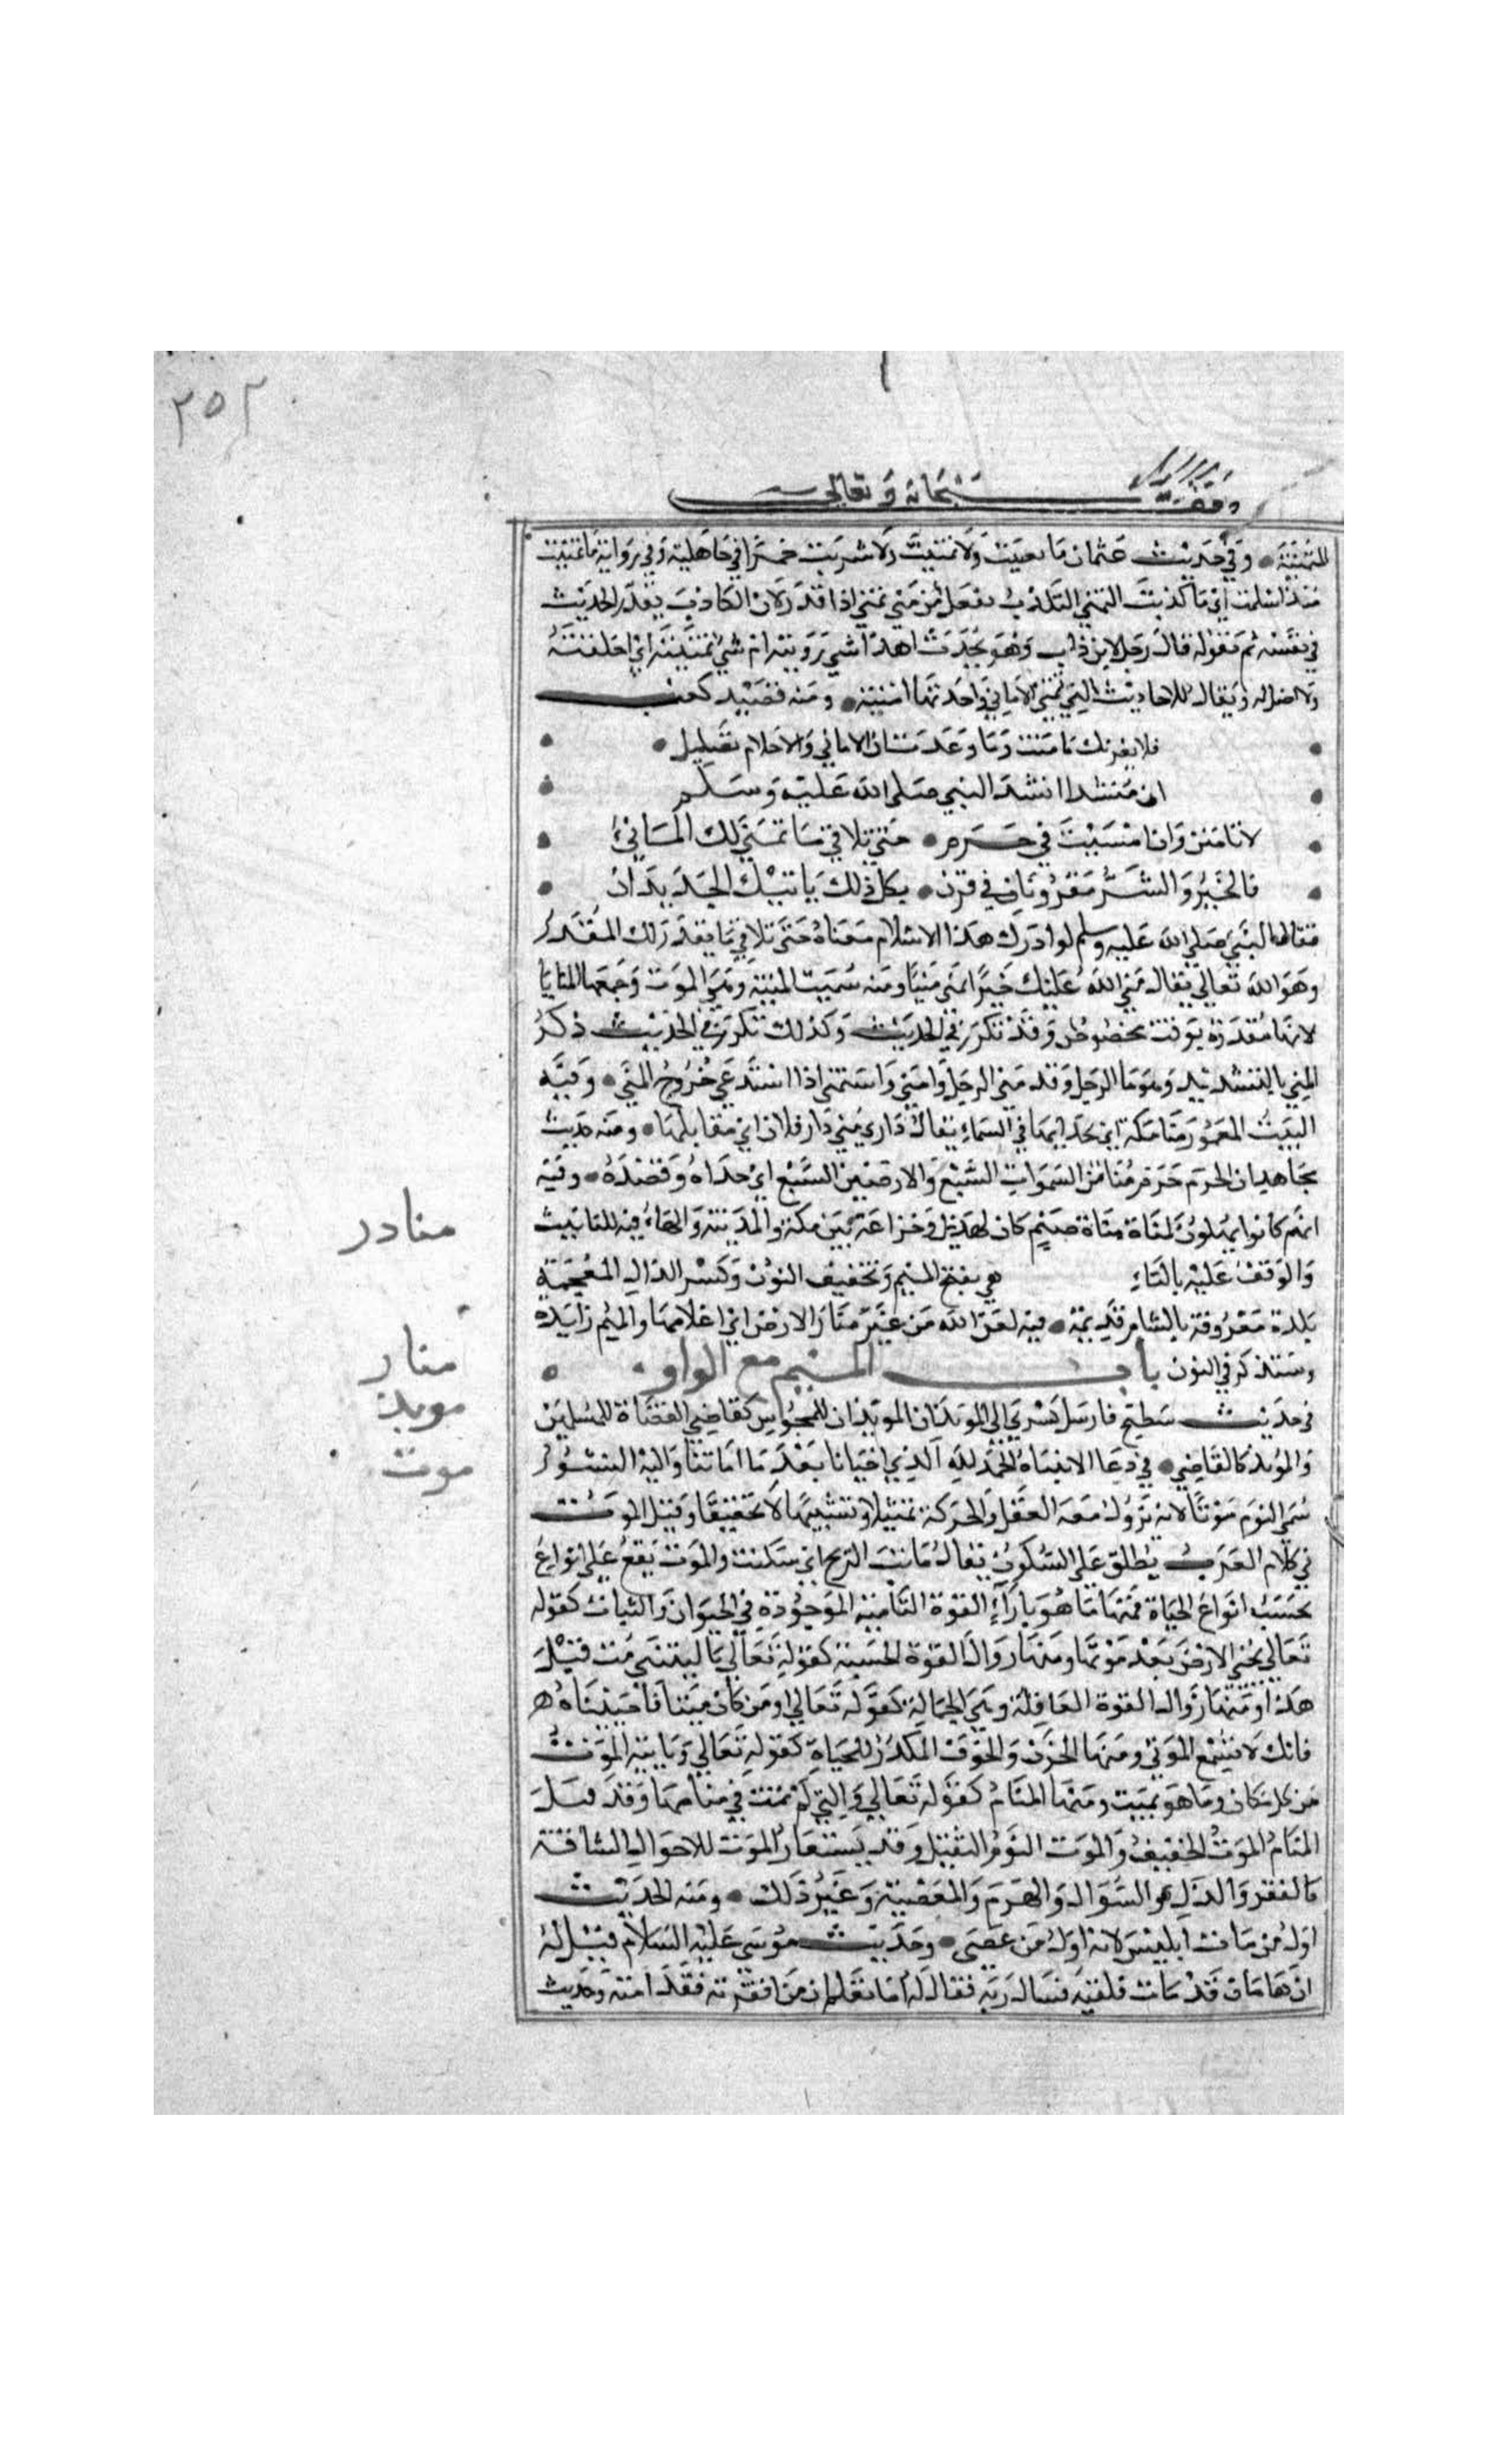 ٢٥٢
وقف لله سبحانه وتعالى
المتمنية وفي حديث عثمان ما تعنيت ولا تمنيت ولا شربت خمرا في جاهلية وفي رواية ما تمنيت
منذ اسلمت اي ما كذبت التمني التكذب تفعل من مني يمني اذا قدر لان الكاذب يقدر الحديث
في نفسه ثم يقوله قال رجل لابن داب وهو يحدث اهذا شي رويته ام شي تمنيته اي اختلقته
ولا اصل له ويقال للاحاديث التي تتمنى الاماني واحدتها امنية ومنه قصيد كعب
فلا يغرنك ما منت وما وعدت ان الاماني والاحلام تضليل
ان منشدا انشد النبي صلى الله عليه وسلم
لا تامنن وان امسيت في حرم حتى تلاقي ما تمنى لك الماني
فالخير والشر مقرونان في قرن بكل ذلك ياتيك الجديدان
فقال النبي صلى الله عليه وسلم لو ادرك هذا الاسلام معناه حتى تلاقي ما يقدر لك المقدر
وهو الله تعالى يقال منى الله عليك خيرا يمني منيا ومنه سميت المنية وهي الموت وجمعها المنايا
لانها مقدرة بوقت مخصوص وقد تكرر في الحديث وكذلك تكرر في الحديث ذكر
المني بالتشديد وهو ما الرجل وقد منى الرجل وامنى واستمنى اذا استدعى خروج المني وفيه
البيت المعمور منا مكة اي بحذايها في السماء يقال داري منى دار فلان اي مقابلها ومنه حديث
مجاهد ان الحرم حرم مناه من السموات السبع والارضين السبع اي حذاه وقصده وفيه
انهم كانوا يهلون لمناة مناة صنم كان لهذيل وخزاعة بين مكة والمدينة والهاء فيه للتانيث
والوقف عليه بالتاء هي بفتح الميم وتخفيف النون وكسر الدال المعجمة
منادر
بلدة معروفة بالشام قديمة فيه لعن الله من غير منار الارض اي اعلامها والميم زايدة
منار
وستذكر في النون باب الميم مع الواو
موبذ
في حديث سطيح فارسل كسرى الى الموبذان الموبذان للمجوس كقاضي القضاة للمسلمين
والموبذ كالقاضي في دعا الانتباه الحمد لله الذي احيانا بعد ما اماتنا واليه النشور
موت
سمي النوم موتا لانه يزول معه العقل والحركة تمثيلا وتشبيها لا تحقيقا وقيل الموت
في كلام العرب يطلق على السكون يقال ماتت الريح اي سكنت والموت يقع على انواع
بحسب انواع الحياة فمنها ما هو بازاء القوة النامية الموجودة في الحيوان والنبات كقوله
تعالى يحيي الارض بعد موتها ومنها زوال القوة الحسية كقوله تعالى يا ليتني مت قبل
هذا ومنها زوال القوة العاقلة وهي الجهالة كقوله تعالى او من كان ميتا فاحييناه ه
فانك لا تسمع الموتى ومنها الحزن والخوف المكدر للحياة كقوله تعالى وياتيه الموت
من كل مكان وما هو بميت ومنها المنام كقوله تعالى والتي لم تمت في منامها وقد قيل
المنام الموت الخفيف والموت النوم الثقيل وقد يستعار الموت للاحوال الشاقة
كالفقر والذل والسوال والهرم والمعصية وغير ذلك ومنه الحديث
اول من مات ابليس لانه اول من عصى وحديث موسى عليه السلام قيل له
ان هامان قد مات فلقيه فسال ربه فقال له اما تعلم ان من افقرته فقد امته وحديث